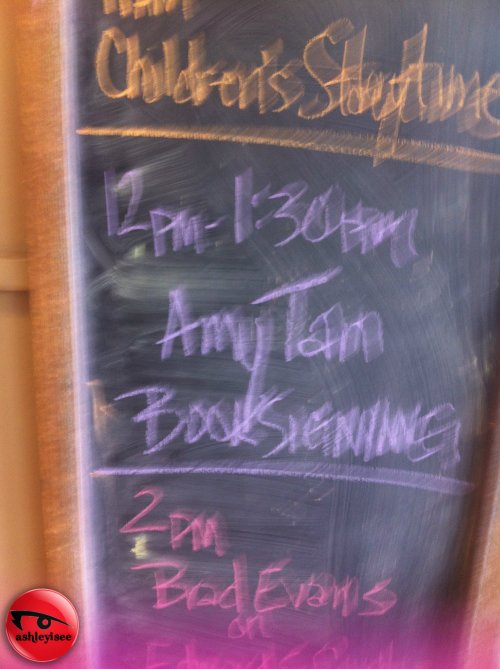 11AM
Children's Storytime
12PM-1:30PM
Amy Tan
Book Signing
2PM
Brad Evans
on
ashleyisee